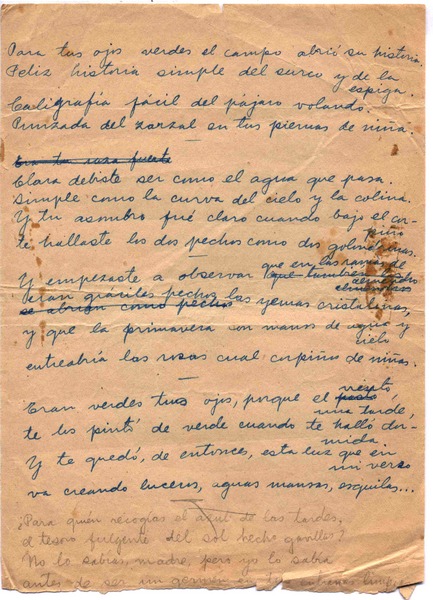 Para tus ojos verdes el campo abrió su historia.
Feliz historia simple del surco y de la
espiga.
Caligrafía fácil del pájaro volando.
Punzada del zarzal en tus piernas de niña.
Clara debiste ser como el agua que pasa.
Simple como la curva del cielo y la colina.
Y tu asombro fué claro cuando bajo el cor-
piño
te hallaste los dos pechos como dos golondrinas.
Y empezaste a observar que en las ramas de
que también almendro
eran gráciles pechos las yemas cristalinas,
se abrían como pechos
y que la primavera con manos de agua y
cielo
entreabría las rosas cual corpiño de niñas.
Eran verdes tus ojos, porque el viento
una tarde,
te los pintó de verde cuando te halló dor-
mida.
Y te quedó, de entonces, esta luz que en
mi verso
va creando luceros, aguas mansas, esquilas...
¿Para quién recogías el azul de las tardes,
el tesoro fulgente del sol hecho gavillas?
No lo sabías, madre, pero yo lo sabía
antes de ser un germen en